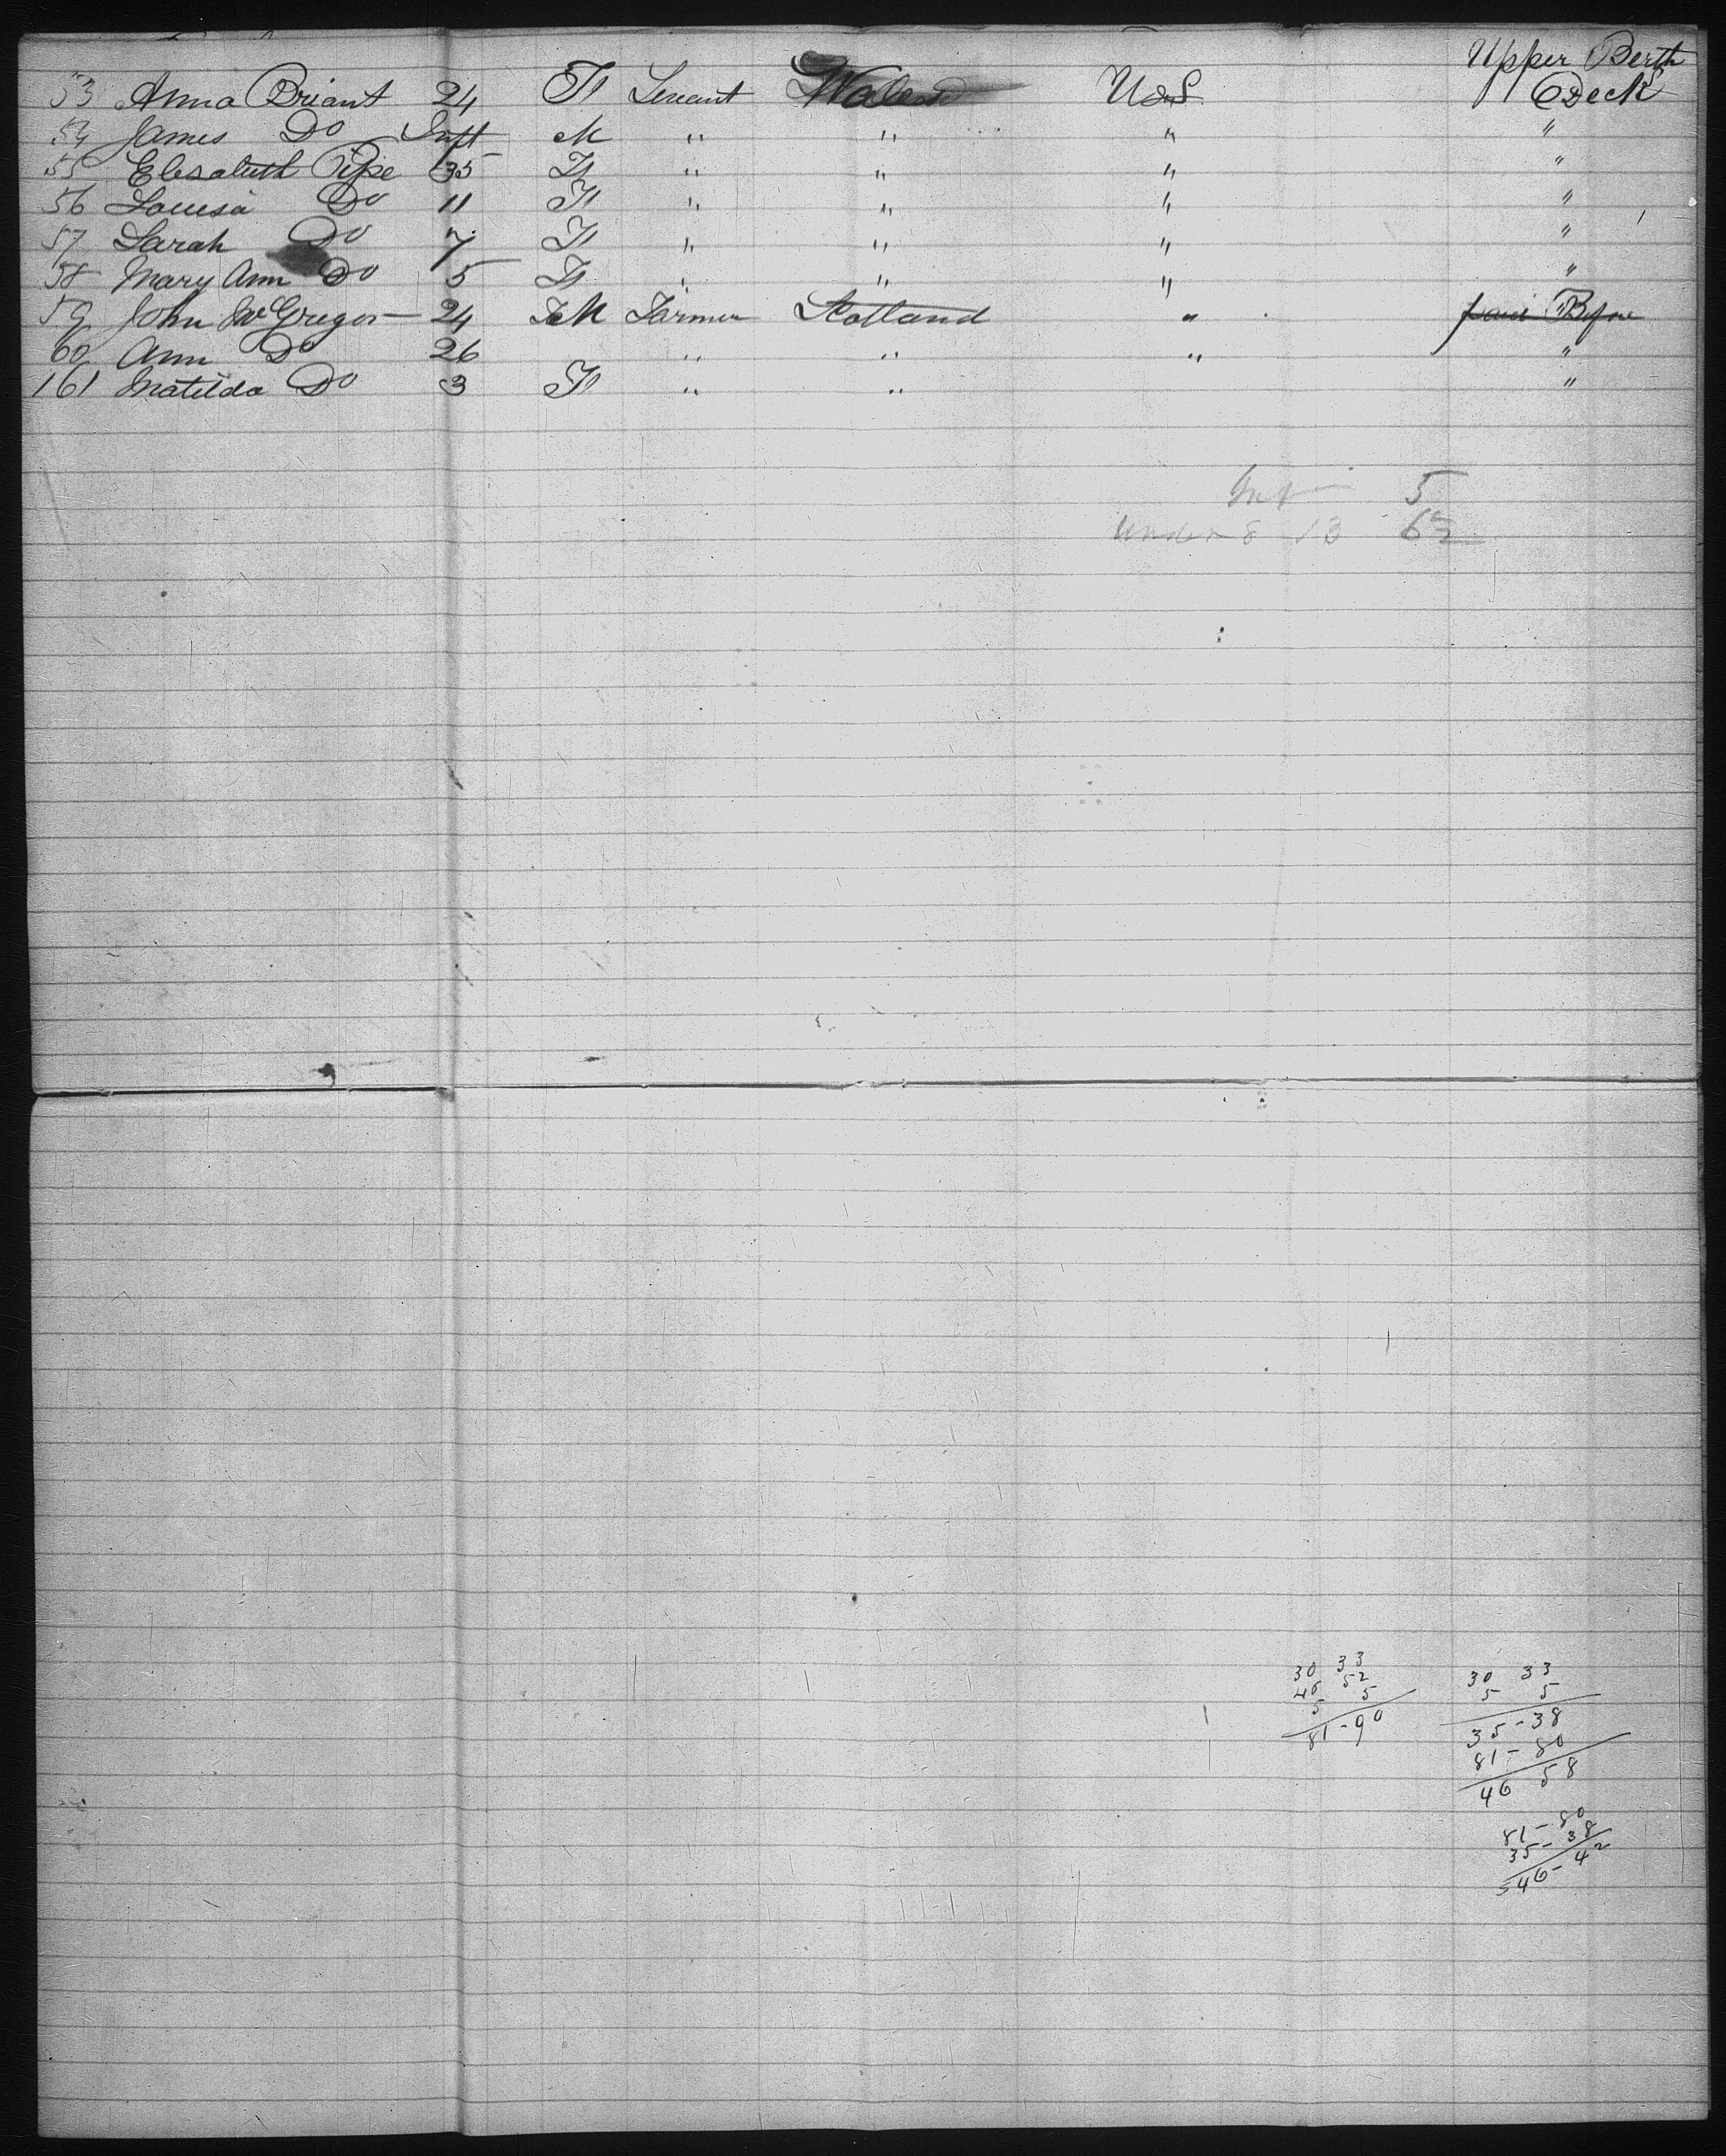 Upper Berth
53 Anna Briant 24 F Servant Wales U.S. Deck
54 James Do Inft M " " " "
55 Elesabeth Pipe 35 F " " " "
56 Louisa Do 11 F " " " "
57 Sarah Do 7 F " " " "
58 Mary Ann Do 5 F " " " "
59 John McGregor 24 M Farmer Scotland " Before
60 Ann Do 26 " " " "
161 Matilda Do 3 F " " "
Inf 5
Under 8 13
30 33
46 52
5 5
81-90
30 33
5 5
35-38
81-80
46 58
81-80
35-38
46-42